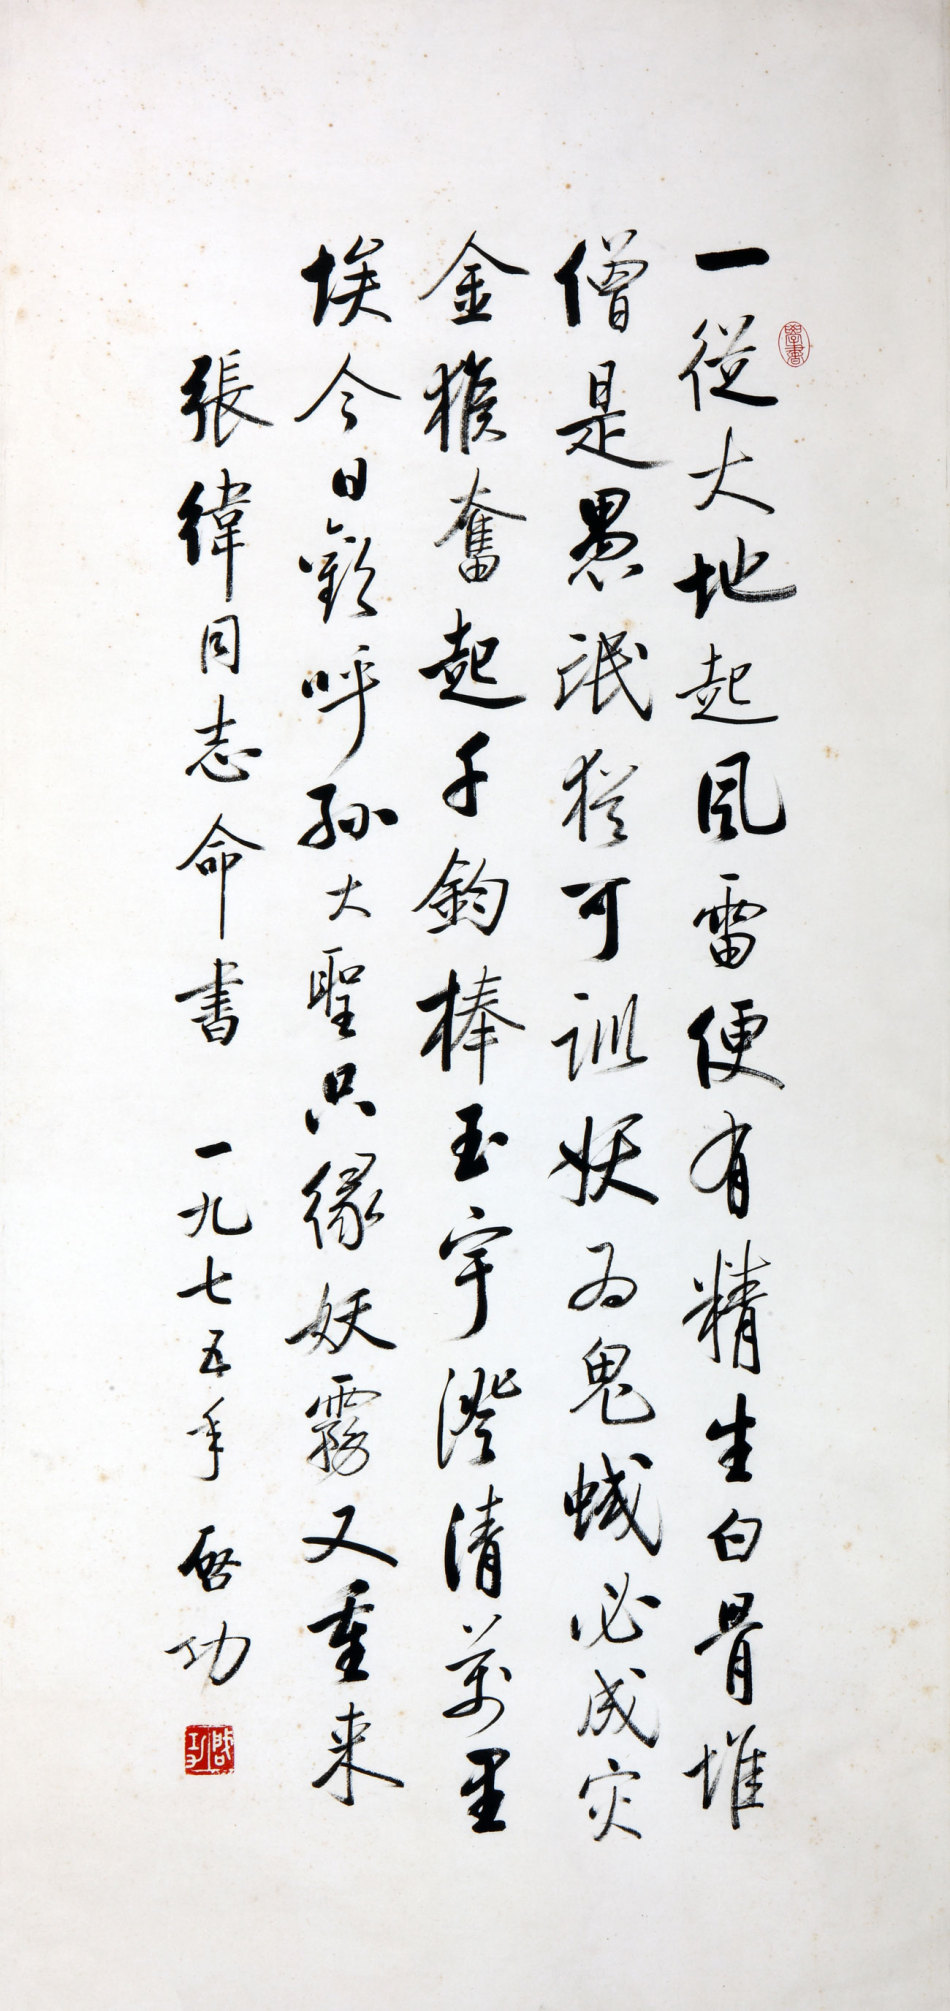 一從大地起風雷便有精生白骨堆
僧是愚氓猶可訓妖为鬼蜮必成灾
金猴奮起千鈞棒玉宇澄清萬里
埃今日歡呼孫大聖只緣妖霧又重来
張緯同志命書 一九七五年 啓功
學書
啟功